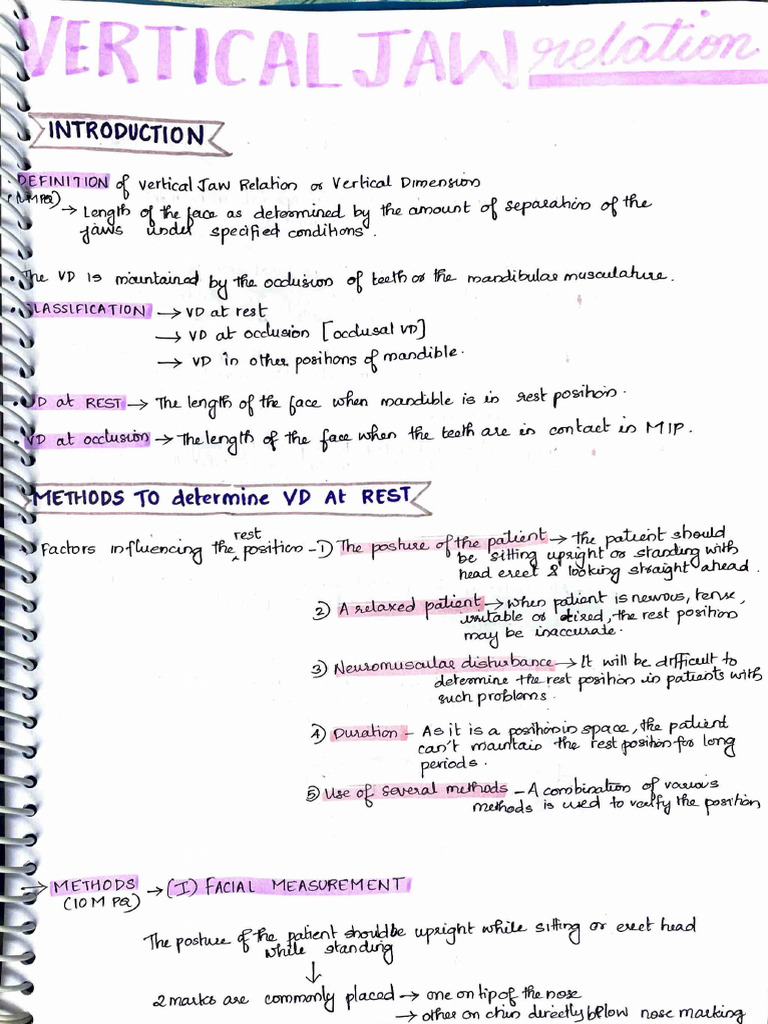 VERTICAL JAW relation
INTRODUCTION
• DEFINITION of Vertical Jaw Relation or Vertical Dimension
→ Length of the face as determined by the amount of separation of the
jaws under specified conditions.
• The VD is maintained by the occlusion of teeth or the mandibular musculature.
• CLASSIFICATION → VD at rest
→ VD at occlusion [occlusal VD]
→ VD in other positions of mandible.
• VD at REST → The length of the face when mandible is in rest position.
• VD at occlusion → The length of the face when the teeth are in contact in MIP.
METHODS TO determine VD At REST
Factors influencing the rest position - 1) The posture of the patient → the patient should
be sitting upright or standing with
head erect & looking straight ahead.
2) A relaxed patient → when patient is nervous, tense,
irritable or tired, the rest position
may be inaccurate.
3) Neuromuscular disturbance → It will be difficult to
determine the rest position in patients with
such problems.
4) Duration - As it is a position in space, the patient
can't maintain the rest position for long
periods.
5) Use of several methods - A combination of various
methods is used to verify the position
→ METHODS → (I) FACIAL MEASUREMENT
(10M PQ)
The posture of the patient should be upright while sitting or erect head
while standing
↓
2 marks are commonly placed → one on tip of the nose
→ other on chin directly below nose marking